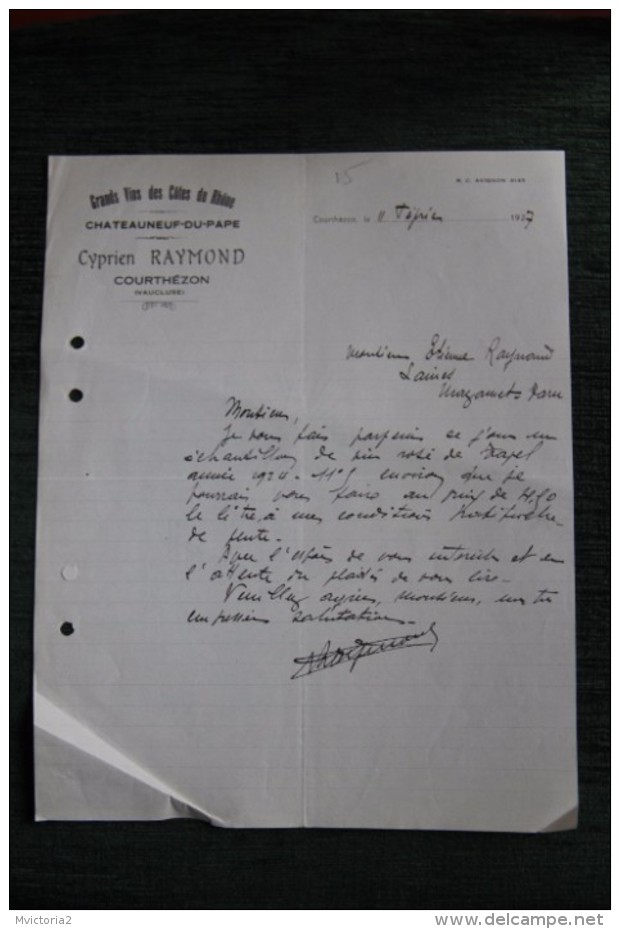 15
R. C. AVIGNON 8145
Grands Vins des Côtes du Rhône
CHATEAUNEUF-DU-PAPE
Cyprien RAYMOND
COURTHÉZON
(VAUCLUSE)
Courthézon, le 11 Février 1927
Monsieur Raynaud
Laines
Mazamet Tarn
Monsieur,
Je vous fais parvenir ce jour un
échantillon de vin rosé de
année 1924 - 11°5 environ que je
pourrais vous faire au prix de
le litre, à mes conditions
de vente.
l'espoir de vous et en
l'attente du plaisir de vous lire.
Veuillez agréer, Monsieur, mes
empressées salutations.
Mvictoria2
delcampe.net